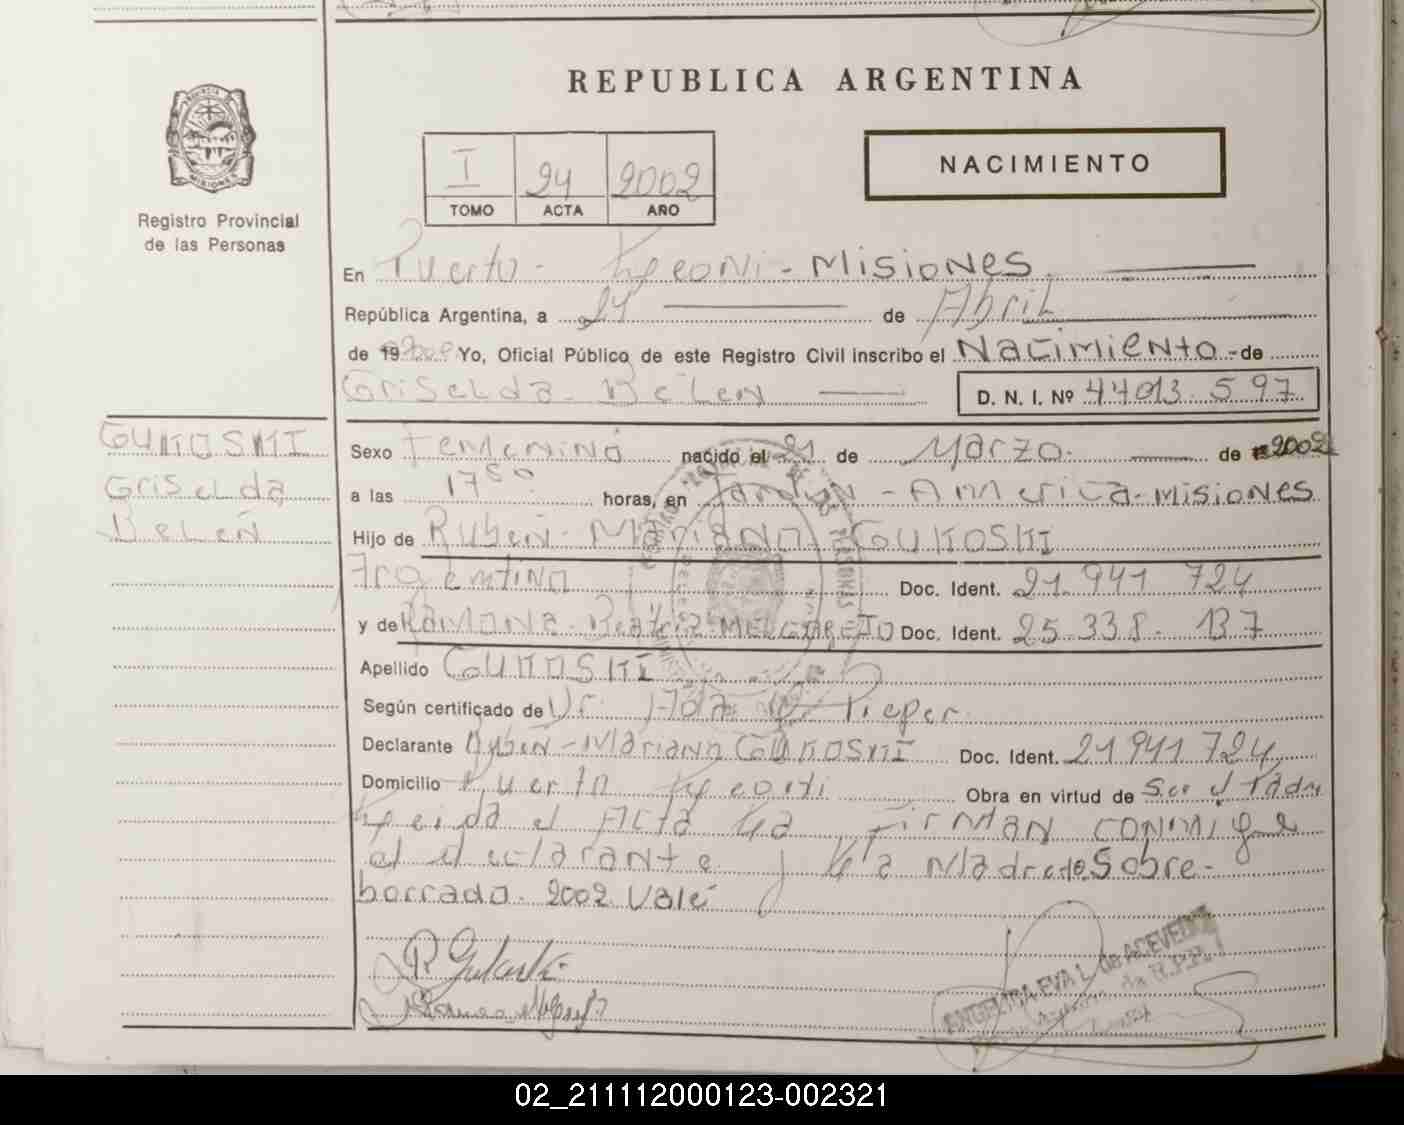 REPUBLICA ARGENTINA
PROVINCIA
MISIONES
Registro Provincial
de las Personas
I 24 2002
TOMO ACTA AÑO
NACIMIENTO
En Puerto - Leoni - Misiones
República Argentina, a 24 de Abril
de 19 2002 Yo, Oficial Público de este Registro Civil inscribo el Nacimiento - de
Griselda Belen D. N. I. Nº 44013.597
GUKOSKI
Griselda
Belen
Sexo Femenino nacido el 21 de Marzo de 2002
a las 17 50 horas, en Jardin - America - Misiones
Hijo de Ruben Mariano GUKOSKI
Argentino Doc. Ident. 21.941 724
y de Ramona Beatriz MELGAREJO Doc. Ident. 25.338.137
Apellido GUKOSKI
Según certificado de Dr. Pieper
Declarante Ruben - Mariano GUKOSKI Doc. Ident. 21941724
Domicilio Puerto Leoni Obra en virtud de Ser el Padre
Leida el Acta La Firman conmigo
el declarante y La Madre de Sobre-
borrado. 2002. Vale
ANGELICA EVA L. de ACEVEDO
02_211112000123-002321